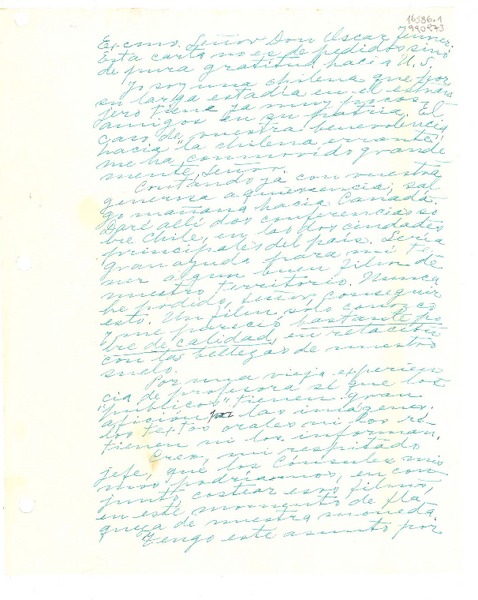 16586.1
990473
Excmo. Señor Don Oscar Fenner.
Esta carta no es de pedidos sino
de pura gratitud hacia U.S.
Yo soy una chilena que por
su larga estadía en el extran-
jero tiene ya muy pocos
amigos en su patria. El
caso de vuestra benevolencia
hacia "la chilena errante"
me ha conmovido grande
mente, Señor.
Contando ya con vuestra
generosa aquiescencia, sal
go mañana hacia Canadá.
Daré allí dos conferencias so
bre Chile, en las dos ciudades
principales del país. Sería
gran ayuda para mí te-
ner algun buen film de
nuestro territorio. Nunca
he podido, señor, conseguir
esto. Un film, solo conozco
y me pareció bastante po
bre de calidad, en relación
con las bellezas de nuestro
suelo.
Por mi vieja experien
cia de profesora sé que los
"públicos" tienen gran
afición las imágenes.
Los textos orales ni los re-
tienen ni los informan.
Creo, mi respetado
jefe, que los Cónsules mis
mos podríamos, en con
junto, costear esos films,
en este momento de fla
queza de nuestra moneda
Tengo este asunto por